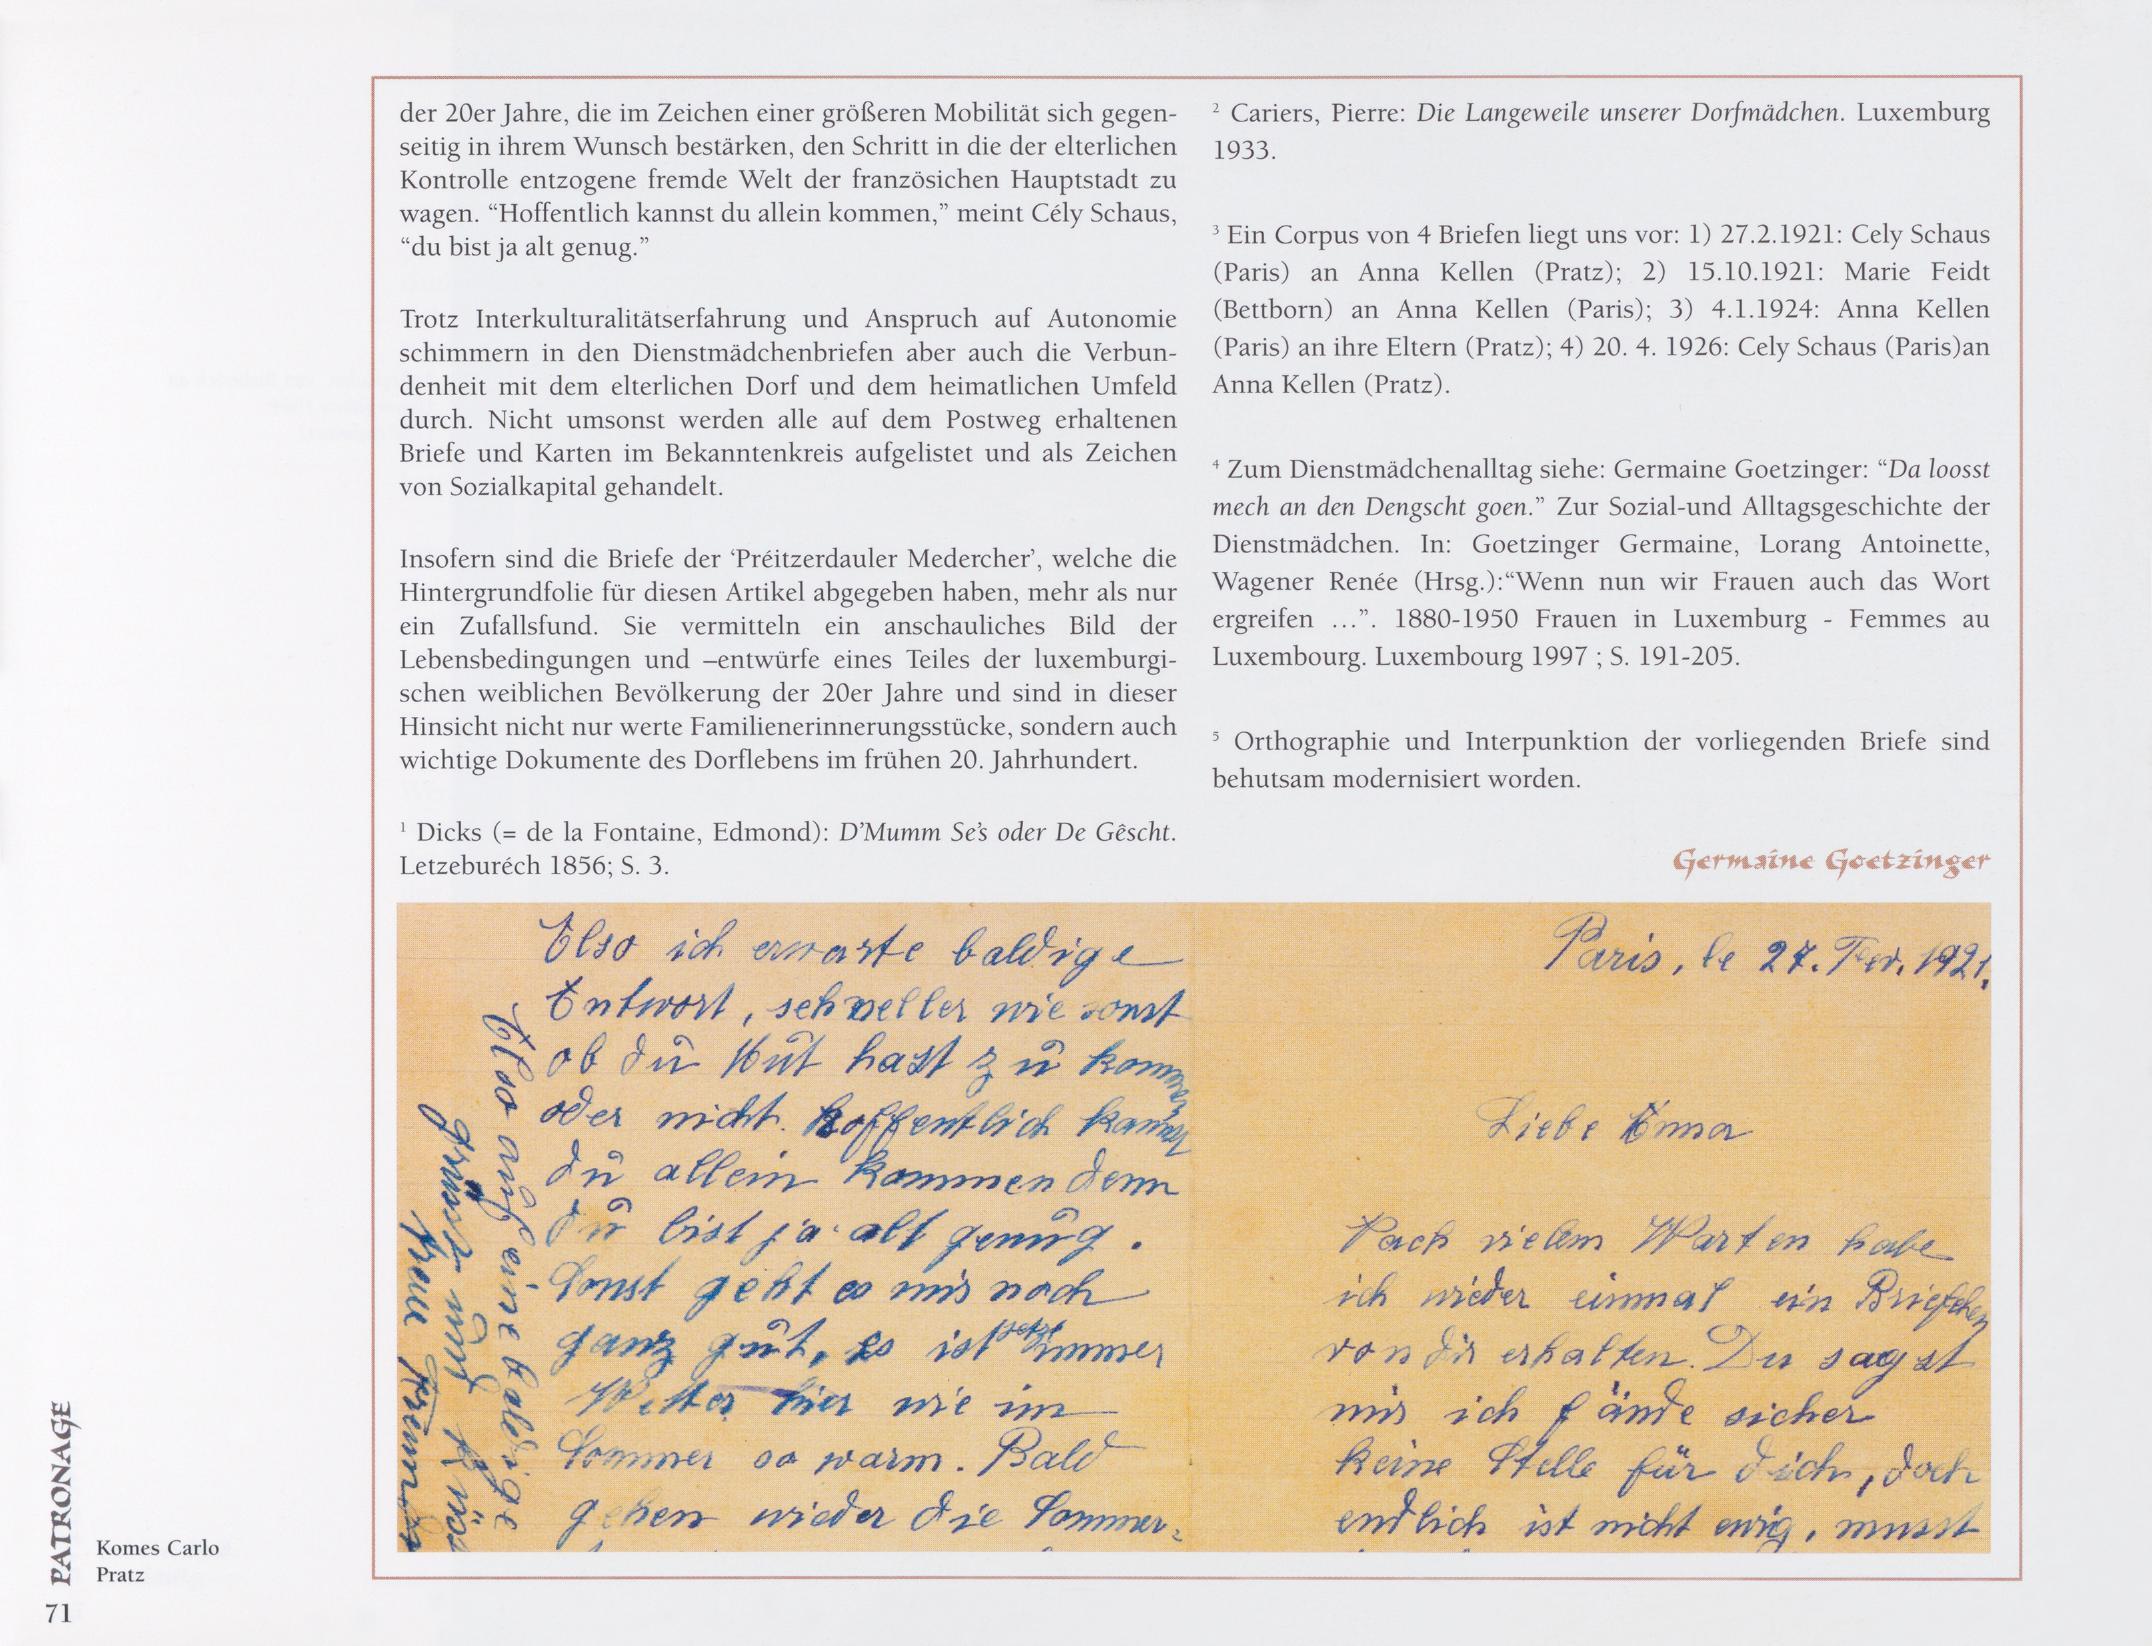 der 20er Jahre, die im Zeichen einer größeren Mobilität sich gegen-
seitig in ihrem Wunsch bestärken, den Schritt in die der elterlichen
Kontrolle entzogene fremde Welt der französichen Hauptstadt zu
wagen. “Hoffentlich kannst du allein kommen,” meint Cély Schaus,
“du bist ja alt genug.”
Trotz Interkulturalitätserfahrung und Anspruch auf Autonomie
schimmern in den Dienstmädchenbriefen aber auch die Verbun-
denheit mit dem elterlichen Dorf und dem heimatlichen Umfeld
durch. Nicht umsonst werden alle auf dem Postweg erhaltenen
Briefe und Karten im Bekanntenkreis aufgelistet und als Zeichen
von Sozialkapital gehandelt.
Insofern sind die Briefe der ‘Préitzerdauler Medercher’, welche die
Hintergrundfolie für diesen Artikel abgegeben haben, mehr als nur
ein Zufallsfund. Sie vermitteln ein anschauliches Bild der
Lebensbedingungen und –entwürfe eines Teiles der luxemburgi-
schen weiblichen Bevölkerung der 20er Jahre und sind in dieser
Hinsicht nicht nur werte Familienerinnerungsstücke, sondern auch
wichtige Dokumente des Dorflebens im frühen 20. Jahrhundert.
1 Dicks (= de la Fontaine, Edmond): D’Mumm Se’s oder De Gêscht.
Letzeburéch 1856; S. 3.
2 Cariers, Pierre: Die Langeweile unserer Dorfmädchen. Luxemburg
1933.
3 Ein Corpus von 4 Briefen liegt uns vor: 1) 27.2.1921: Cely Schaus
(Paris) an Anna Kellen (Pratz); 2) 15.10.1921: Marie Feidt
(Bettborn) an Anna Kellen (Paris); 3) 4.1.1924: Anna Kellen
(Paris) an ihre Eltern (Pratz); 4) 20. 4. 1926: Cely Schaus (Paris)an
Anna Kellen (Pratz).
4 Zum Dienstmädchenalltag siehe: Germaine Goetzinger: “Da loosst
mech an den Dengscht goen.” Zur Sozial-und Alltagsgeschichte der
Dienstmädchen. In: Goetzinger Germaine, Lorang Antoinette,
Wagener Renée (Hrsg.):“Wenn nun wir Frauen auch das Wort
ergreifen …”. 1880-1950 Frauen in Luxemburg - Femmes au
Luxembourg. Luxembourg 1997 ; S. 191-205.
5 Orthographie und Interpunktion der vorliegenden Briefe sind
behutsam modernisiert worden.
Germaine Goetzinger
Also ich erwarte baldige
Antwort, schneller wie sonst
ob du Mut hast zu kommen
oder nicht. Hoffentlich kannst
du allein kommen denn
du bist ja alt genug.
Sonst geht es mir noch
ganz gut, es ist jetzt immer
Wetter hier wie im
Sommer so warm. Bald
gehen wieder die Sommer-
Also auf eine baldige
Paris, le 27. Fev. 1921.
Liebe Anna
Nach vielem Warten habe
ich wieder einmal ein Briefchen
von dir erhalten. Du sagst
mir ich fände sicher
keine Stelle für dich, doch
endlich ist nicht ewig, musst
PATRONAGE
Komes Carlo
Pratz
71